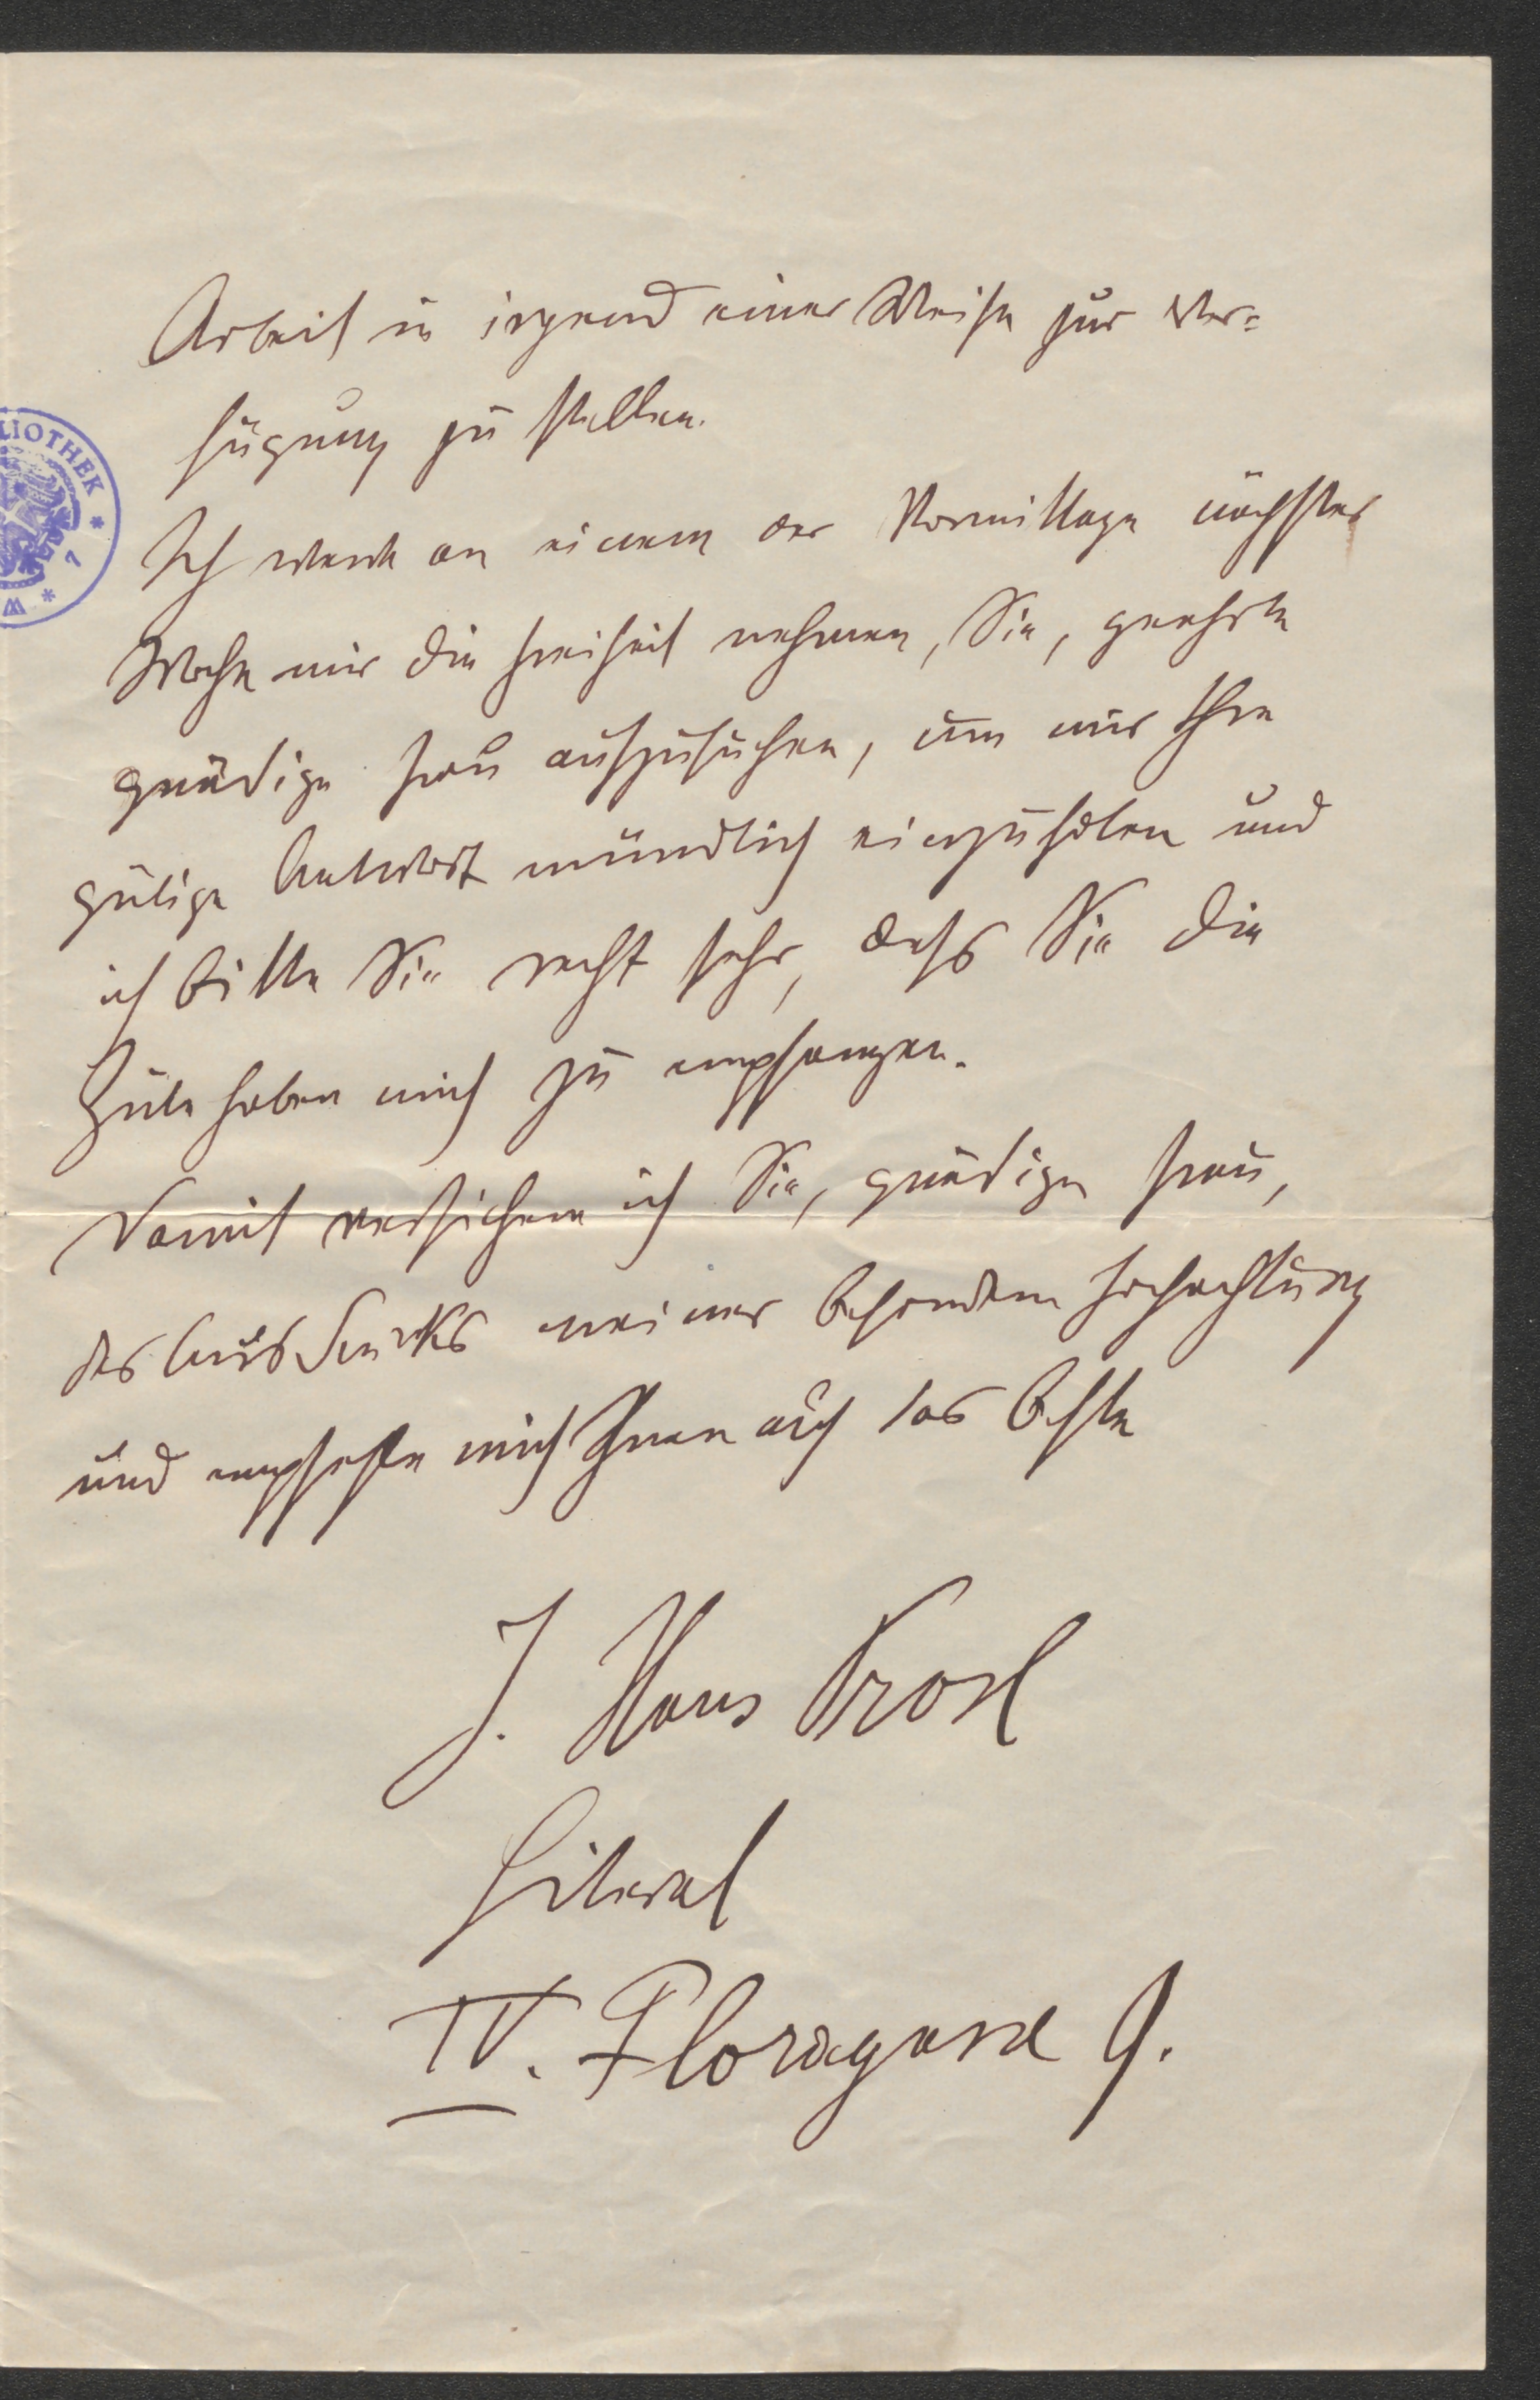 Arbeit in irgend einer Weise zur Ver=
fügung zu stellen.
Ich werde an einem der Vormittage nächster
Woche mir die Freiheit nehmen, Sie, geehrte
gnädige Frau aufzusuchen, um mir Ihre
gütige Antwort mündlich einzuholen und
ich bitte Sie recht sehr, dass Sie die
Güte haben mich zu empfangen.
Damit versichere ich Sie, gnädige Frau,
des Ausdrucks meiner besondern Hochachtung
und empfehle mich Ihnen auf das Beste
J. Hans Prosl
Literat
IV. Floragasse 9.
LIOTHEK * 7 * W